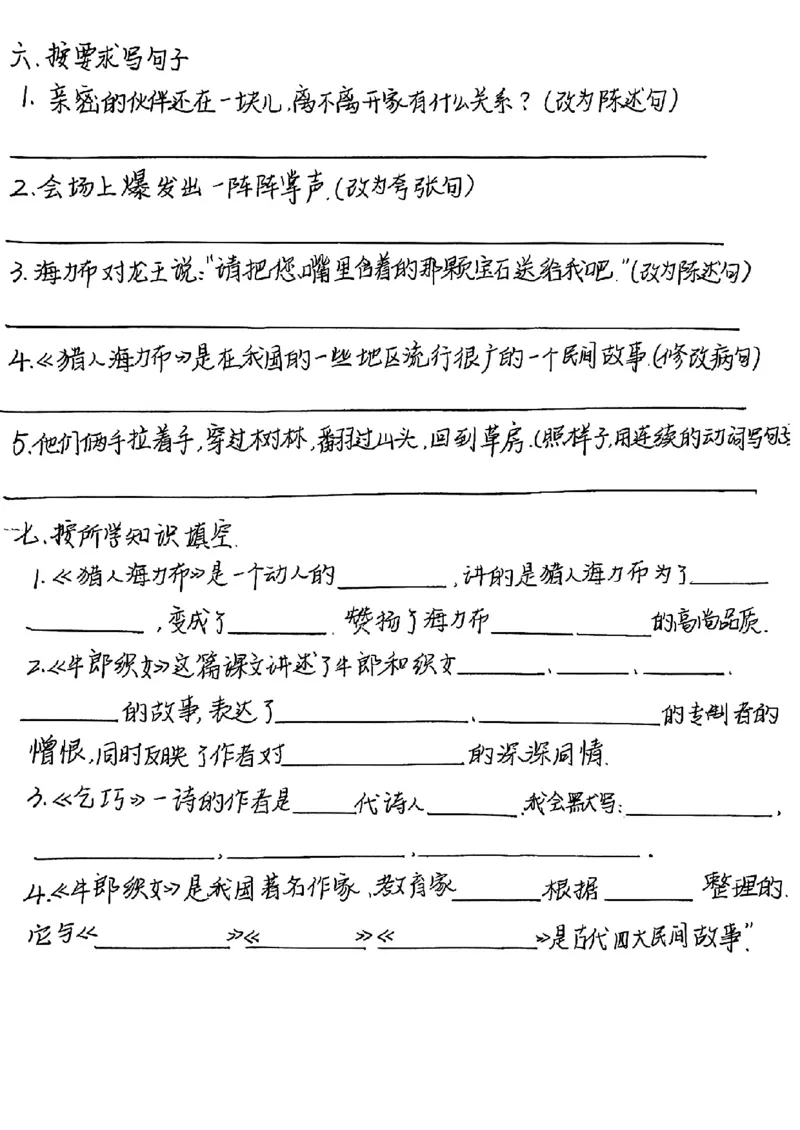 六.按要求写句子
1. 亲密的伙伴还在一块儿,离不离开家有什么关系?(改为陈述句)
2.会场上爆发出一阵阵掌声.(改为夸张句)
3.海力布对龙王说:"请把您嘴里含着的那颗宝石送给我吧."(改为陈述句)
4.《猎人海力布》是在我国的一些地区流行很广的一个民间故事.(修改病句)
5.他们俩手拉着手,穿过树林,翻过山头,回到草房.(照样子,用连续的动词写句
七.按所学知识填空.
1.《猎人海力布》是一个动人的________,讲的是猎人海力布为了______
________,变成了_______.赞扬了海力布______ ______的高尚品质.
2.《牛郎织女》这篇课文讲述了牛郎和织女_______、______、______、
________的故事,表达了______________、_____________的专制者的
憎恨,同时反映了作者对_____________的深深同情.
3.《乞巧》一诗的作者是_____代诗人_______.我会默写:___________,
______________,_____________,________________.
4.《牛郎织女》是我国著名作家、教育家_______根据_______整理的.
它与《__________》《_________》《___________》是古代四大民间故事".